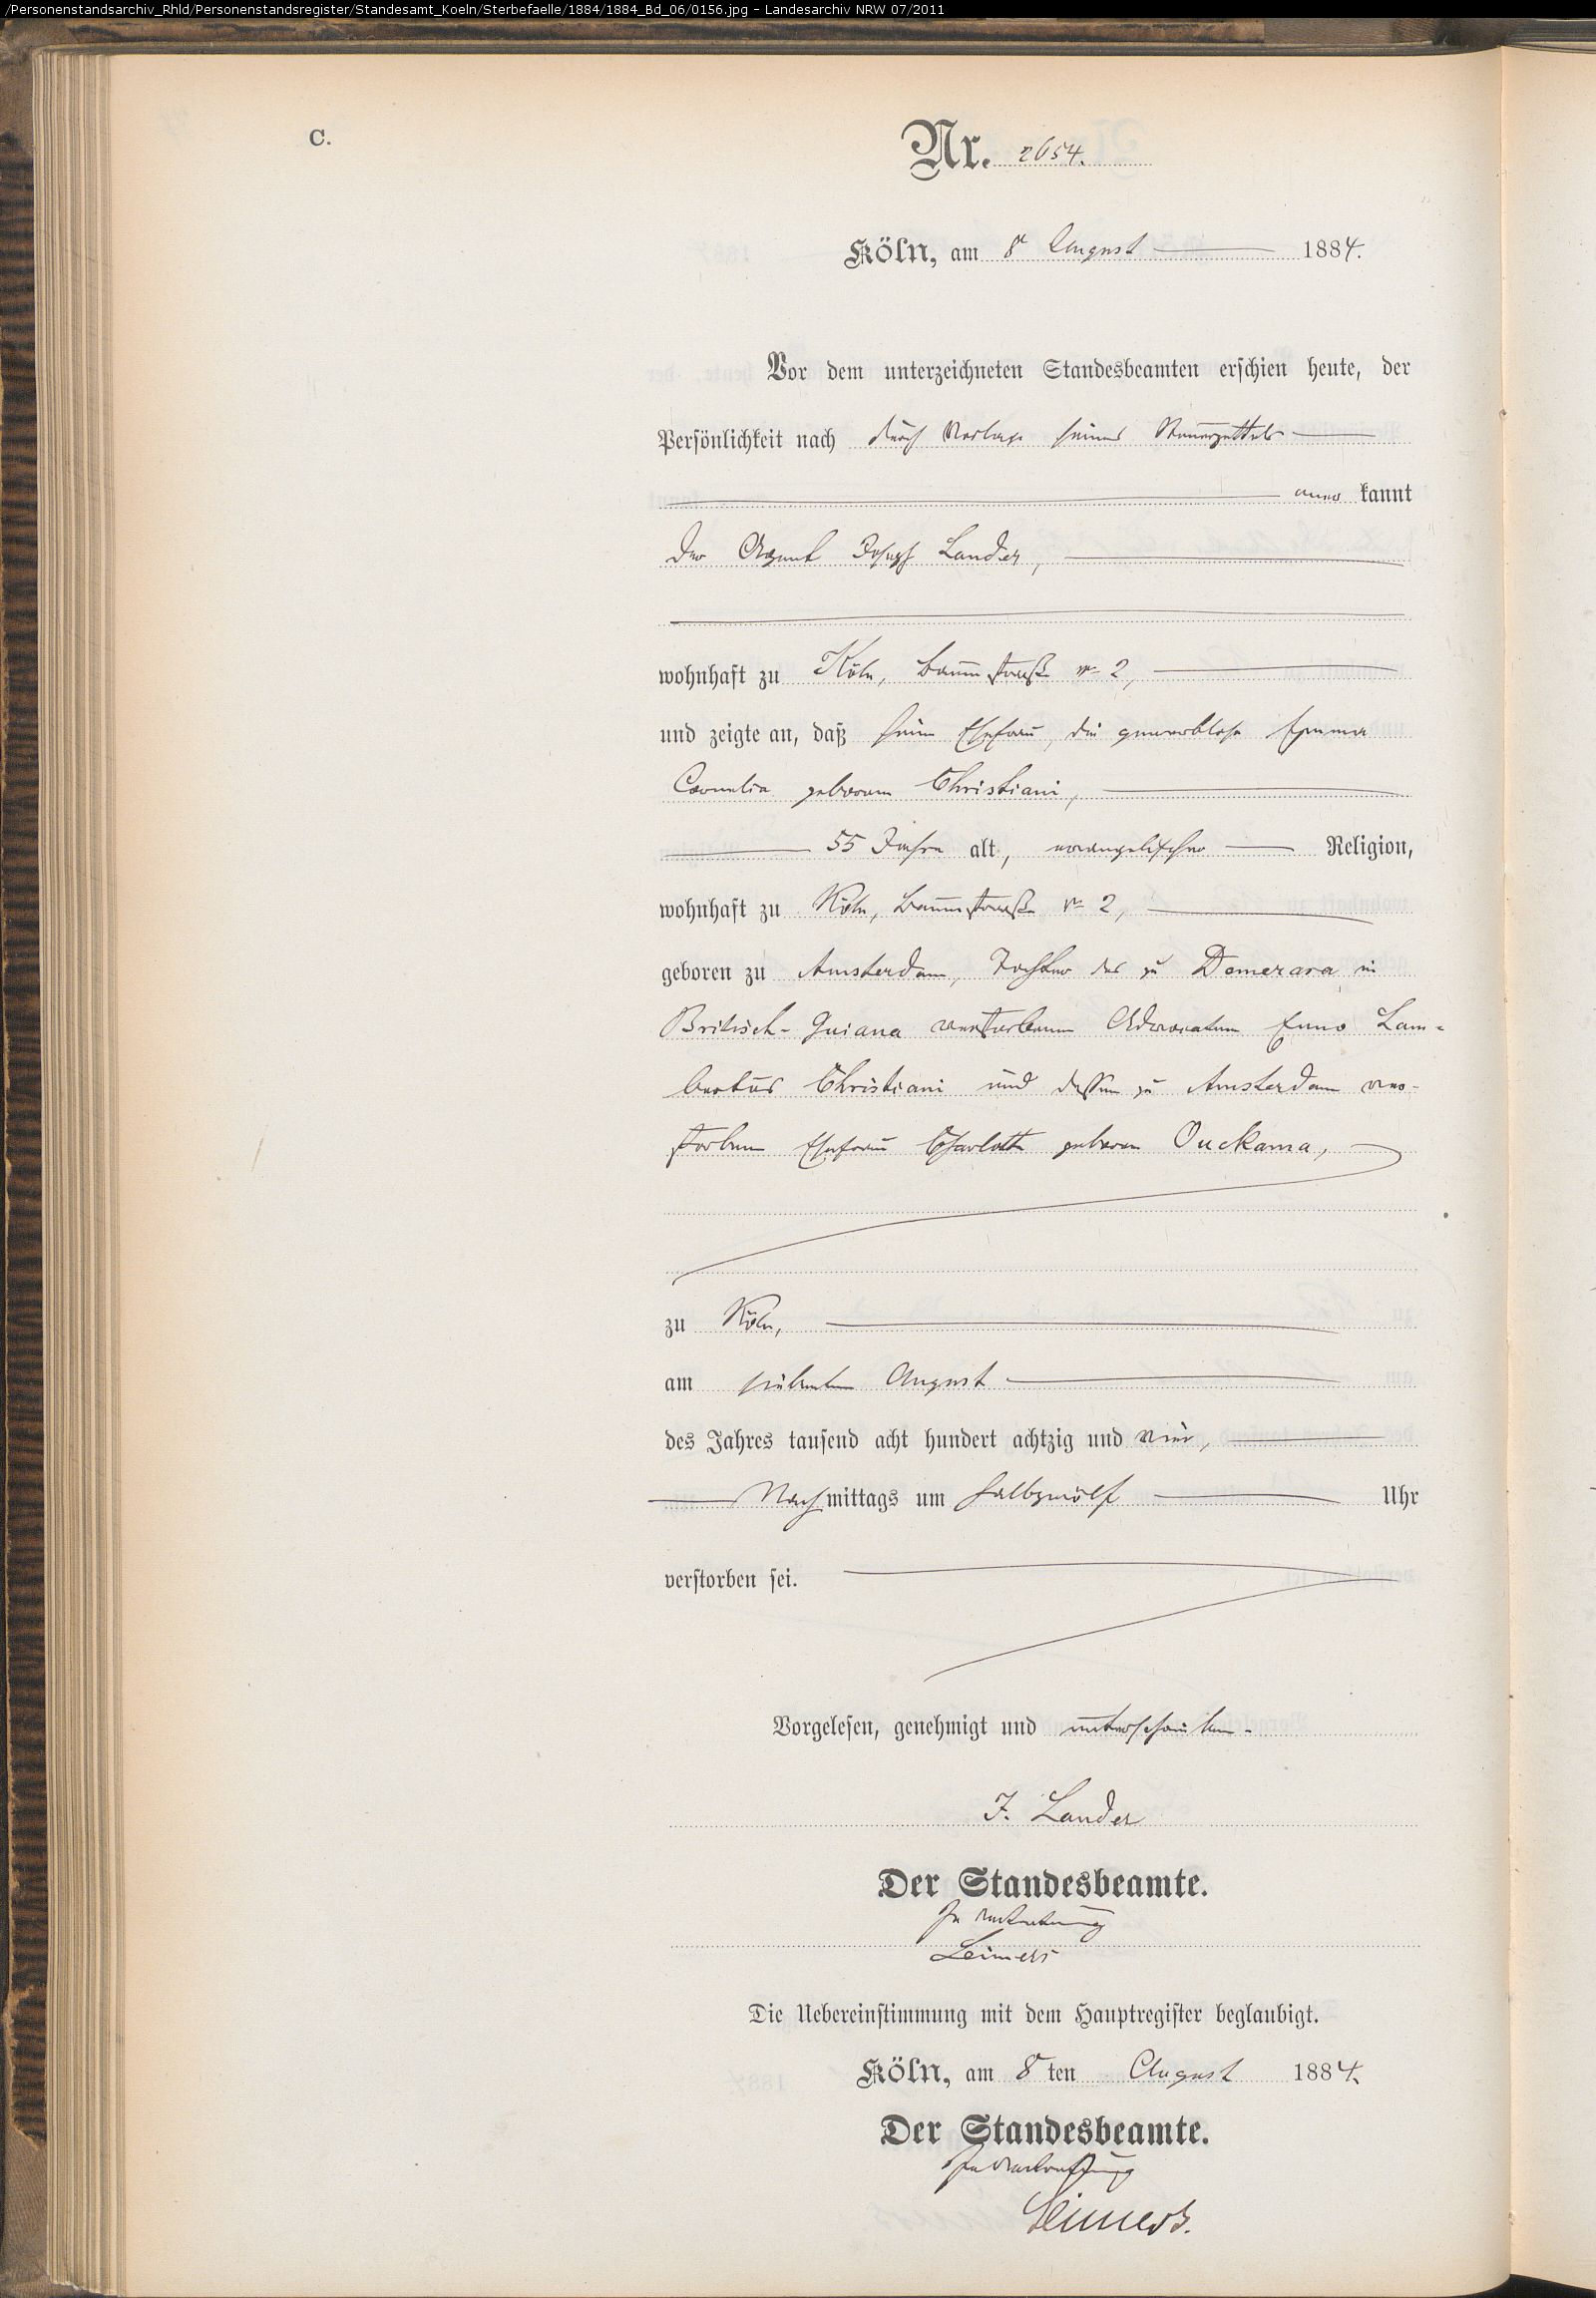 /Personenstandsarchiv_Rhld/Personenstandsregister/Standesamt_Koeln/Sterbefaelle/1884/1884_Bd_06/0156.jpg – Landesarchiv NRW 07/2011
C.
Nr. 2654.
Köln, am 8n August 1884.
Vor dem unterzeichneten Standesbeamten erschien heute, der
Persönlichkeit nach durch Vorlage seines Steuerzettels
aner kannt
der Agent Joseph Lander,
wohnhaft zu Köln, Baumstraße No 2,
und zeigte an, daß seine Ehefrau, die gewerblose Emma
Cornelia geborene Christiani,
55 Jahre alt, evangelischer Religion,
wohnhaft zu Köln, Baumstraße No 2,
geboren zu Amsterdam, Tochter des zu Demerara in
Britisch-Guiana verstorbenen Advocaten Enno Lam-
bertus Christiani und dessen zu Amsterdam ver-
storbenen Ehefrau Charlotte geborene Ouckama,
zu Köln,
am siebenten August
des Jahres tausend acht hundert achtzig und vier,
Nachmittags um halbzwölf Uhr
verstorben sei.
Vorgelesen, genehmigt und unterschrieben.
J. Lander
Der Standesbeamte.
In Vertretung
Leimers
Die Uebereinstimmung mit dem Hauptregister beglaubigt.
Köln, am 8 ten August 1884.
Der Standesbeamte.
In Vertretung